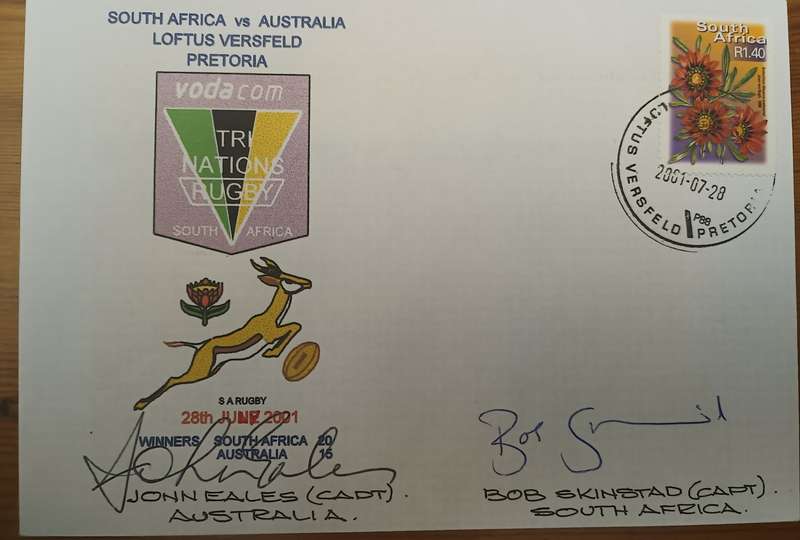 SOUTH AFRICA vs AUSTRALIA
LOFTUS VERSFELD
PRETORIA
vodacom
TRI
NATIONS
RUGBY
SOUTH AFRICA
S A RUGBY
28th 2001
WINNERS SOUTH AFRICA 20
AUSTRALIA 15
JOHN EALES (CAPT).
AUSTRALIA.
South
Africa
R1.40
LOFTUS VERSFELD
2001-07-28
P88
PRETORIA
Bob
BOB SKINSTAD (CAPT).
SOUTH AFRICA.